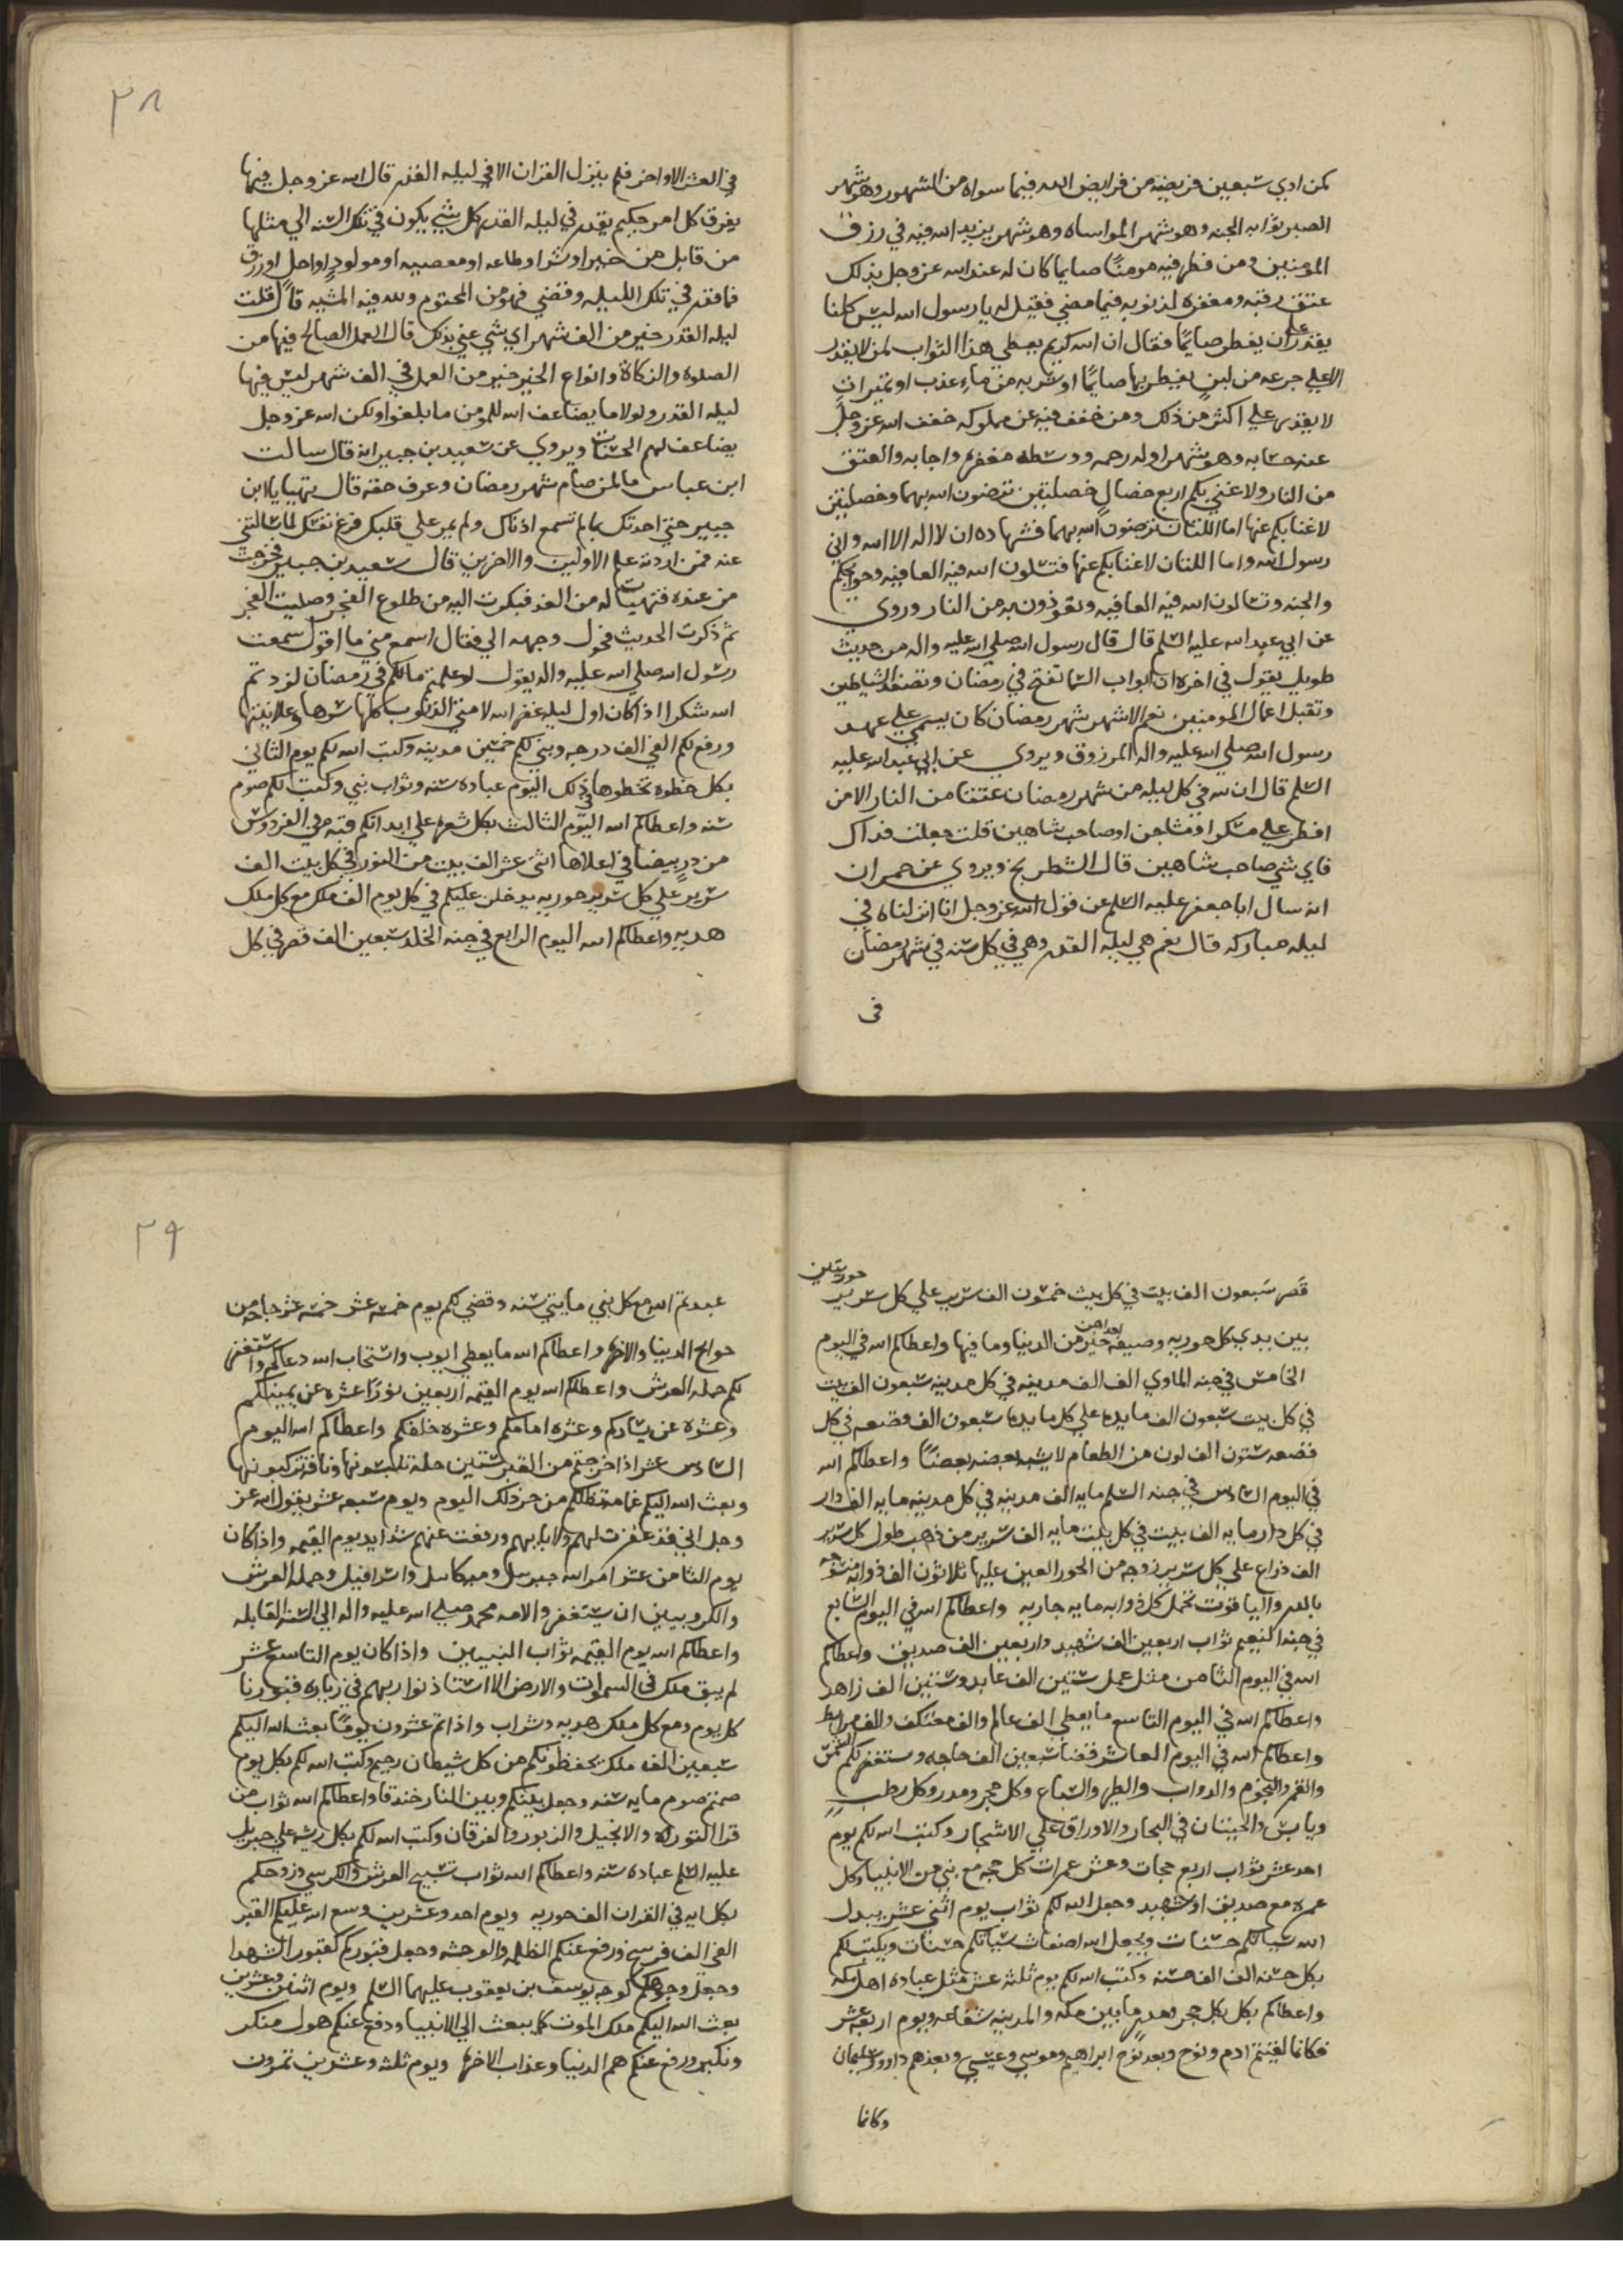 كمن ادي سبعين فريضه من فرايض الله فيما سواه من الشهور وهو شهر
الصبر ثوابه الجنه وهو شهر المواساه وهو شهر يزيد الله فيه في رزق
المومنين ومن فطر فيه مومنًا صايما كان له عند الله عز وجل بذلك
عتق رقبه ومغفره لذنوبه فيما مضي فقيل له يا رسول الله ليس كلنا
يقدر علي ان يفطر صايمًا فقال ان الله كريم يعطي هذا الثواب لمن لا يقدر
الا علي جرعه من لبن يفطر بها صايمًا او شربه من ماء عذب او تميرات
لا يقدر علي اكثر من ذلك ومن خفف فيه عن مملوكه خفف الله عز وجل
عنه حسابه وهو شهر اوله رحمه ووسطه مغفره واجابه والعتق
من النار ولا غني بكم اربع خصال خصلتين ترضون الله بهما وخصلتين
لا غنا بكم عنها اما اللتان ترضون الله بهما فشهاده ان لا اله الا الله واني
رسول الله واما اللتان لا غنا بكم عنها فتسلون الله فيه العافيه وحوايجكم
والجنه وتسالون الله فيه العافيه وتعوذون به من النار وروي
عن ابي عبد الله عليه السلم قال قال رسول الله صلي الله عليه واله من حديث
طويل يقول في اخره ان ابواب السما تفتح في رمضان وتصفد الشياطين
وتقبل اعمال المومنين نعم الاشهر شهر رمضان كان يسمي علي عهد
رسول الله صلي الله عليه واله المرزوق ويروي عن ابي عبد الله عليه
السلم قال ان لله في كل ليله من شهر رمضان عتقا من النار الا من
افطر علي مسكر او مشاحن او صاحب شاهين قلت جعلت فداك
فاي شي صاحب شاهين قال الشطرنج ويروي عن حمران
انه سال ابا جعفر عليه السلم عن قول الله عز وجل انا انزلناه في
ليله مباركه قال نعم هي ليله القدر وهي في كل سنه في شهر رمضان
في
٣٨
في العشر الاواخر فلم ينزل القران الا في ليله القدر قال الله عز وجل فيها
يفرق كل امر حكيم يقدر في ليله القدر كل شي يكون في تلك السنه الي مثلها
من قابل من خير او شر او طاعه او معصيه او مولود او اجل او رزق
فما قدر في تلك الليله وقضي فهو من المحتوم ولله فيه المشيه قال قلت
ليله القدر خير من الف شهر اي شي عني بذلك قال العمل الصالح فيها من
الصلوه والزكاة وانواع الخير خير من العمل في الف شهر ليس فيها
ليله القدر ولولا ما يضاعف الله للمومن ما بلغوا ولكن الله عز وجل
يضاعف لهم الحسنات ويروي عن سعيد بن جبير انه قال سالت
ابن عباس ما لمن صام شهر رمضان وعرف حقه قال تهيا يا ابن
جبير حتي احدثك بما لم تسمع اذناك ولم يمر علي قلبك فرغ نفسك لما سالتني
عنه فمن اردته علم الاولين والاخرين قال سعيد بن جبير فخرجت
من عنده فتهيات له من الغد فبكرت اليه من طلوع الفجر وصليت الفجر
ثم ذكرت الحديث فحول وجهه الي فقال اسمع مني ما اقول سمعت
رسول الله صلي الله عليه واله يقول لو علمتم ما لكم في رمضان لزدتم
الله شكرا اذا كان اول ليله غفر الله لامتي الذنوب كلها سرها وعلانيتها
ورفع لكم الفي الف درجه وبني لكم خمسين مدينه وكتب الله لكم يوم الثاني
بكل خطوه تخطوها في ذلك اليوم عباده سنه وثواب نبي وكتب لكم صوم
سنه واعطاكم الله اليوم الثالث بكل شعره علي ابدانكم قبه في الفردوس
من در بيضا في اعلاها اثني عشر الف بيت من النور في كل بيت الف
سرير علي كل سرير حوريه يدخل عليكم في كل يوم الف ملك مع كل ملك
هديه واعطاكم الله اليوم الرابع في جنه الخلد سبعين الف قصر في كل
قصر سبعون الف بيت في كل بيت خمسون الف سرير علي كل سرير حوريتين
بين يدي كل حوريه وصيفه احداهن خير من الدنيا وما فيها واعطاكم الله في اليوم
الخامس في جنه الماوي الف الف مدينه في كل مدينه سبعون الف بيت
في كل بيت سبعون الف مايده علي كل مايده سبعون الف قصعه في كل
قصعه ستون الف لون من الطعام لا يشبه بعضه بعضًا واعطاكم الله
في اليوم السادس في جنه السلم مايه الف مدينه في كل مدينه مايه الف دار
في كل دار مايه الف بيت في كل بيت مايه الف سرير من ذهب طول كل سرير
الف ذراع علي كل سرير زوجه من الحور العين عليها ثلاثون الف ذوابه منسوجه
بالدر والياقوت تحمل كل ذوابه مايه جاريه واعطاكم الله في اليوم السابع
في جنه النعيم ثواب اربعين الف شهيد واربعين الف صديق واعطاكم
الله في اليوم الثامن مثل عمل ستين الف عابد وستين الف زاهد
واعطاكم الله في اليوم التاسع ما يعطي الف عالم والف معتكف والف مرابط
واعطاكم الله في اليوم العاشر قضا سبعين الف حاجه وستغفر لكم الشمس
والقمر والنجوم والدواب والطير والسباع وكل حجر ومدر وكل رطب
ويابس والحيتان في البحار والاوراق علي الاشجار وكتب الله لكم يوم
احد عشر ثواب اربع حجات وعشر عمرات كل حجه مع نبي من الانبيا وكل
عمره مع صديق او شهيد وجعل الله لكم ثواب يوم اثني عشر يبدل
الله سياتكم حسنات ويجعل الله اضعاف سياتكم حسنات ويكتب لكم
بكل حسنه الف الف حسنه وكتب الله لكم يوم ثلثه عشر مثل عباده اهل مكه
واعطاكم بكل بكل حجر ومدر ما بين مكه والمدينه شفاعه ويوم اربعه عشر
فكانما لقيتم ادم ونوح وبعد نوح ابراهيم وموسي وعيسي وبعدهم داوود وسليمان
وكانما
٣٩
عبدتم الله مع كل نبي مايتي سنه وقضي لكم يوم خمسه عشر خمسه عشر حاجه من
حوايج الدنيا والاخره واعطاكم الله ما يعطي ايوب واستجاب الله دعاكم واستغفر
لكم حمله العرش واعطاكم الله يوم القيمه اربعين نورًا عشره عن يمينكم
وعشره عن يساركم وعشره امامكم وعشره خلفكم واعطاكم الله اليوم
السادس عشر اذا خرجتم من القبر ستين حلة تلبسونها وناقة تركبونها
وبعث الله اليكم غمامه تظلكم من حر ذلك اليوم ويوم سبعه عشر يقول الله عز
وجل اني قد غفرت لهم ولابايهم ورفعت عنهم شدايد يوم القيمه واذا كان
يوم الثامن عشر امر الله جبريل وميكاييل واسرافيل وحمله العرش
والكروبيين ان يستغفر والامه محمد صلي الله عليه واله الي السنه القابله
واعطاكم الله يوم القيمه ثواب النبيين واذا كان يوم التاسع عشر
لم يبق ملك في السموات والارض الا استاذنوا ربهم في زياره قبورنا
كل يوم ومع كل ملك هديه وشراب واذا تم عشرون يومًا بعث الله اليكم
سبعين الف ملك يحفظونكم من كل شيطان رجيم وكتب الله لكم بكل يوم
صمتم صوم مايه سنه وجعل بينكم وبين النار خندقا واعطاكم الله ثواب من
قرا التوراه والانجيل والزبور والفرقان وكتب الله لكم بكل ريشه علي جبريل
عليه السلم عباده سنه واعطاكم الله ثواب تسبيح العرش والكرسي وزوجكم
بكل ايه في القران الف حوريه ويوم احد وعشرين وسع الله عليكم القبر
الفي الف فرسخ ورفع عنكم الظلمه والوحشه وجعل قبوركم كقبور الشهدا
وجعل وجوهكم كوجه يوسف بن يعقوب عليهما السلم ويوم اثنين وعشرين
بعث الله اليكم ملك الموت كما يبعث الي الانبيا ودفع عنكم هول منكر
ونكير ورفع عنكم هم الدنيا وعذاب الاخره ويوم ثلثه وعشرين تمرون